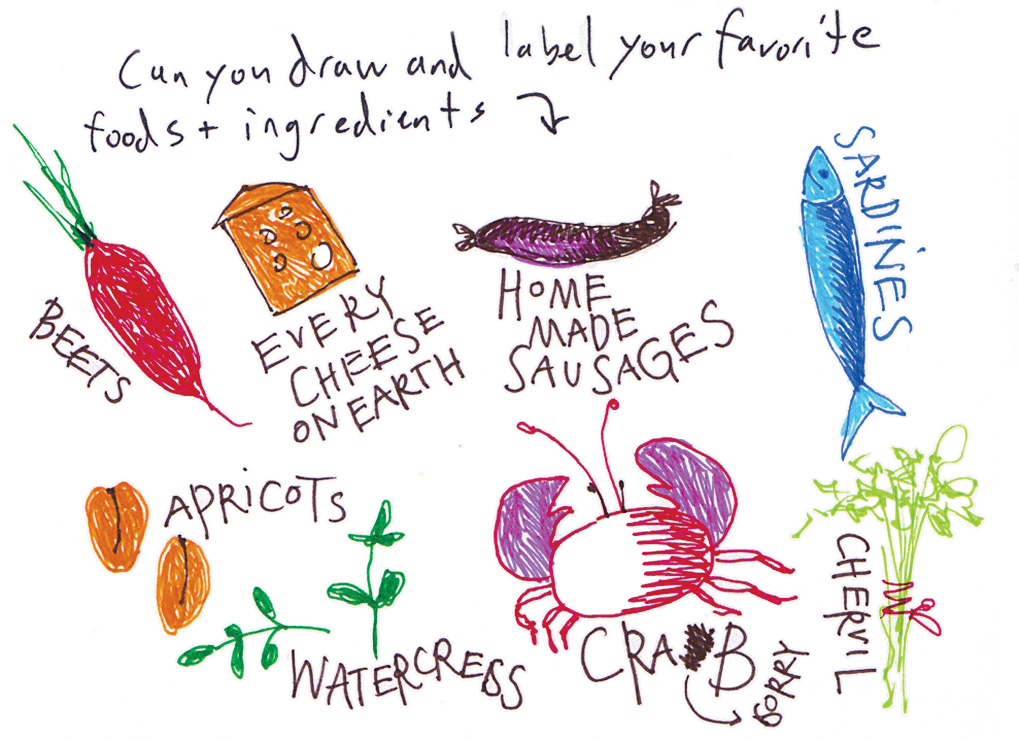 Can you draw and label your favorite
foods + ingredients
BEETS
EVERY
CHEESE
ON EARTH
HOME
MADE
SAUSAGES
SARDINES
APRICOTS
WATERCRESS
CRAB
SORRY
CHERVIL